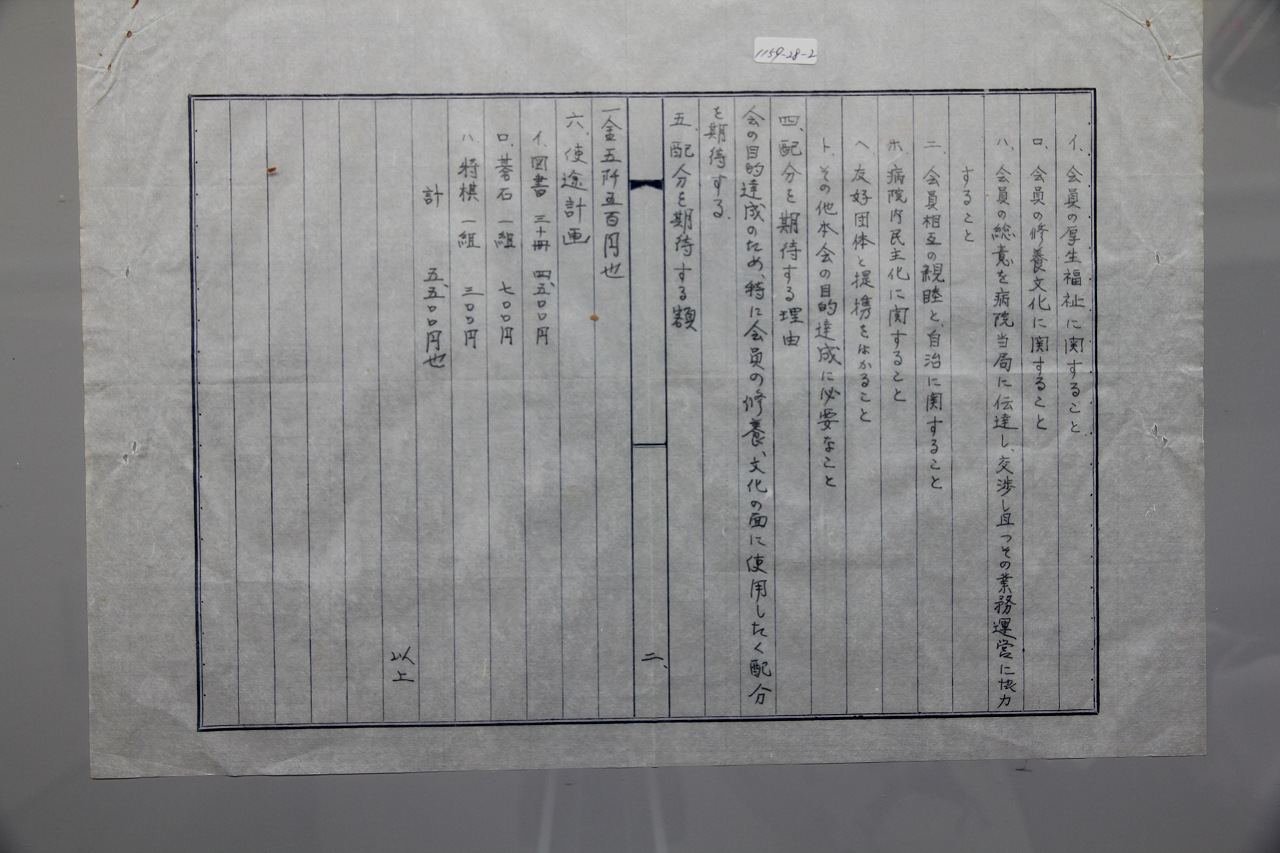 1159-28-2
イ、会員の厚生福祉に関すること
ロ、会員の修養文化に関すること
ハ、会員の総意を病院当局に伝達し、交渉し且つその業務運営に協力
すること
ニ、会員相互の親睦と、自治に関すること
ホ、病院内民主化に関すること
ヘ、友好団体と提携をはかること
ト、その他本会の目的達成に必要なこと
四、配分を期待する理由
会の目的達成のため、特に会員の修養、文化の面に使用したく配分
を期待する。
五、配分を期待する額
二、
一金五阡五百円也
六、使途計画
イ、図書 三十冊 四、五〇〇円
ロ、碁石 一組 七〇〇円
ハ、将棋 一組 三〇〇円
計 五、五〇〇円也
以上